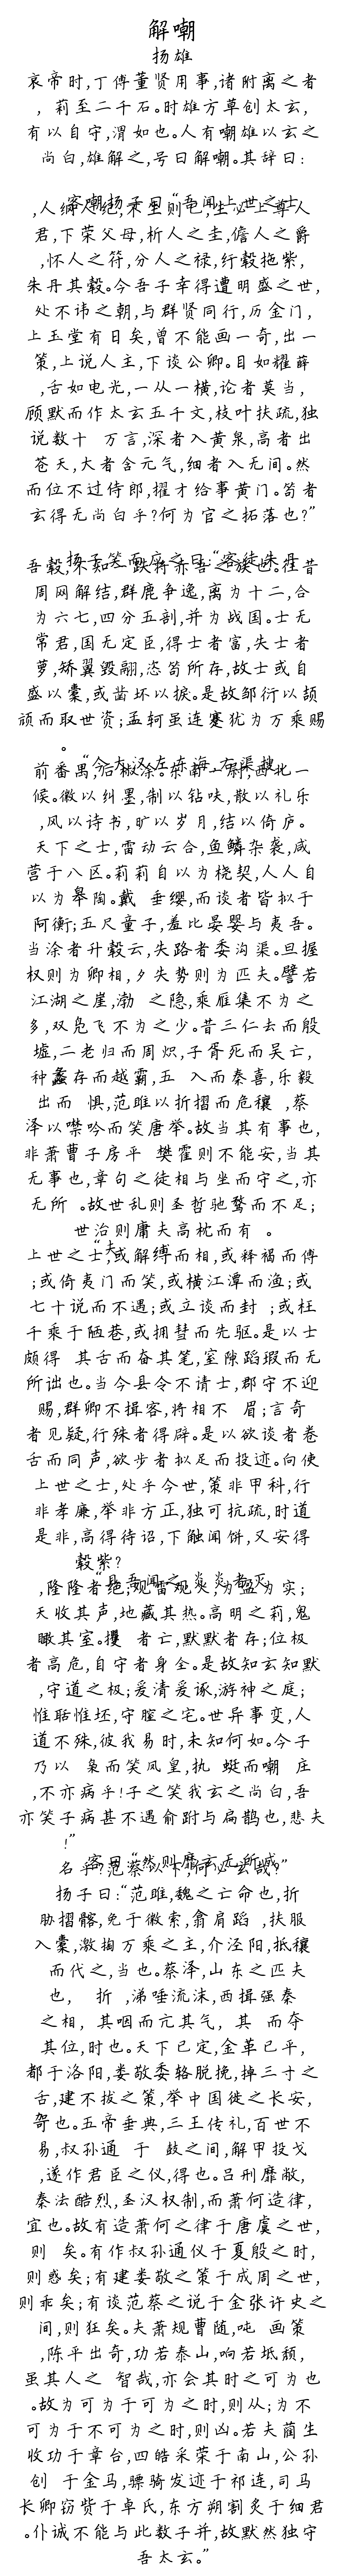 解嘲
扬雄
哀帝时,丁傅董贤用事,诸附离之者
,莉至二千石。时雄方草创太玄,
有以自守,渭如也。人有嘲雄以玄之
尚白,雄解之,号曰解嘲。其辞曰:
君,下荣父母,析人之圭,儋人之爵
,怀人之符,分人之禄,纡毂拖紫,
朱丹其毂。今吾子幸得遭明盛之世,
处不讳之朝,与群贤同行,历金门,
上玉堂有日矣,曾不能画一奇,出一
策,上说人主,下谈公卿。目如耀薛
,舌如电光,一从一横,论者莫当,
顾默而作太玄五千文,枝叶扶疏,独
说数十 万言,深者入黄泉,高者出
苍天,大者含元气,细者入无间。然
而位不过侍郎,擢才给事黄门。笱者
玄得无尚白乎?何为官之拓落也?”
周网解结,群鹿争逸,离为十二,合
为六七,四分五剖,并为战国。士无
常君,国无定臣,得士者富,失士者
萝,矫翼毁翮,恣笱所存,故士或自
盛以橐,或凿坏以捩。是故邹衍以颉
颃而取世资;孟轲虽连蹇犹为万乘赐
。
前番禺,后椒涂。东南一尉,西北一
候。徽以纠墨,制以钻呋,散以礼乐
,风以诗书,旷以岁月,结以倚庐。
天下之士,雷动云合,鱼鳞杂袭,咸
营于八区。莉莉自以为桡契,人人自
以为皋陶。戴 垂缨,而谈者皆拟于
阿衡;五尺童子,羞比晏婴与夷吾。
当涂者升毂云,失路者委沟渠。旦握
权则为卿相,夕失势则为匹夫。譬若
江湖之崖,渤 之隐,乘雁集不为之
多,双凫飞不为之少。昔三仁去而殷
墟,二老归而周炽,子胥死而吴亡,
种蠡存而越霸,五 入而秦喜,乐毅
出而 惧,范雎以折摺而危穰 ,蔡
泽以噤吟而笑唐举。故当其有事也,
非萧曹子房平 樊霍则不能安,当其
无事也,章句之徒相与坐而守之,亦
无所 。故世乱则圣哲驰骛而不足;
世治则庸夫高枕而有 。
“夫
上世之士,或解缚而相,或释褐而傅
;或倚夷门而笑,或横江潭而渔;或
七十说而不遇;或立谈而封 ;或枉
千乘于陋巷,或拥彗而先驱。是以士
颇得 其舌而奋其笔,窒隙蹈瑕而无
所诎也。当今县令不请士,郡守不迎
赐,群卿不揖客,将相不 眉;言奇
者见疑,行殊者得辟。是以欲谈者卷
舌而同声,欲步者拟足而投迹。向使
上世之士,处乎今世,策非甲科,行
非孝廉,举非方正,独可抗疏,时道
是非,高得待诏,下触闻饼,又安得
毂紫?
天收其声,地藏其热。高明之莉,鬼
瞰其室。攫 者亡,默默者存;位极
者高危,自守者身全。是故知玄知默
,守道之极;爰清爰诼,游神之庭;
惟聒惟坯,守膣之宅。世异事变,人
道不殊,彼我易时,未知何如。今子
乃以 枭而笑凤皇,执 蜓而嘲 庄
,不亦病乎!子之笑我玄之尚白,吾
亦笑子病甚不遇俞跗与扁鹊也,悲夫
!”
扬子曰:“范雎,魏之亡命也,折
胁摺髂,免于徽索,翕肩蹈 ,扶服
入橐,激掏万乘之主,介泾阳,抵穰
而代之,当也。蔡泽,山东之匹夫
也, 折 ,涕唾流沫,西揖强秦
之相, 其咽而亢其气, 其 而夺
其位,时也。天下已定,金革已平,
都于洛阳,娄敬委辂脱挽,掉三寸之
舌,建不拔之策,举中国徙之长安,
㔡也。五帝垂典,三王传礼,百世不
易,叔孙通 于 鼓之间,解甲投戈
,遂作君臣之仪,得也。吕刑靡敝,
秦法酷烈,圣汉权制,而萧何造律,
宜也。故有造萧何之律于唐虞之世,
则 矣。有作叔孙通仪于夏殷之时,
则惑矣;有建娄敬之策于成周之世,
则乖矣;有谈范蔡之说于金张许史之
间,则狂矣。夫萧规曹随,吨 画策
,陈平出奇,功若泰山,响若坻颓,
虽其人之 智哉,亦会其时之可为也
。故为可为于可为之时,则从;为不
可为于不可为之时,则凶。若夫蔺生
收功于章台,四皓采荣于南山,公孙
创 于金马,骠骑发迹于祁连,司马
长卿窃赀于卓氏,东方朔割炙于细君
。仆诚不能与此数子并,故默然独守
吾太玄。”